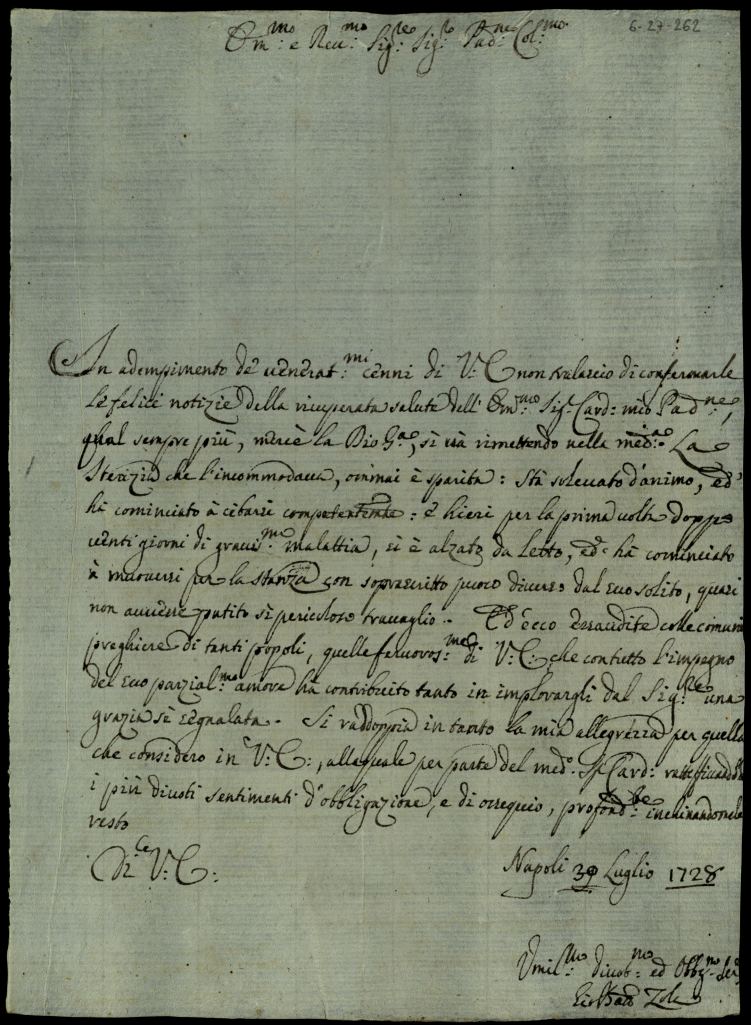 6-27-262
Em.mo e Reu.mo Sig.re Sig.r Pad.ne Col.mo
In adempimento de' venerat.mi cenni di V: E: non tralascio di confermarle
le felici notizie della ricuperata salute dell' Em.mo Sig.r Card: mio Pad.ne,
qual sempre più, mercè la Dio G.a, si và rimettendo nella med.ma La
Iterizia che l'incommodaua, ormai è sparita: Stà solleuato d'animo, ed
hà cominciato à cibarsi competentem.te: e hieri per la prima uolta doppo
uenti giorni di grauis.ma malattia, si è alzato da letto, ed hà cominciato
à muouersi per la stanza con soprascritto puoco diuerso dal suo solito, quasi
non auesse patito sì pericoloso trauaglio. Ed ecco essaudite colle comuni
preghiere di tanti popoli, quelle feruoros.me di V: E: che con tutto l'impegno
del suo parzial.mo amore hà contribuito tanto in implorargli dal Sig.re una
grazia sì segnalata. Si raddoppia in tanto la mia allegrezza per quella
che considero in V: E:, alla quale per parte del med.o S.r Card: ratteficandole
i più diuoti sentimenti d'obbligazione, e di ossequio, profond.te inchinandomele
resto
Di V: E:
Napoli 30 Luglio 1728
Vmil.mo Diuot.mo ed Obblig.mo Ser.